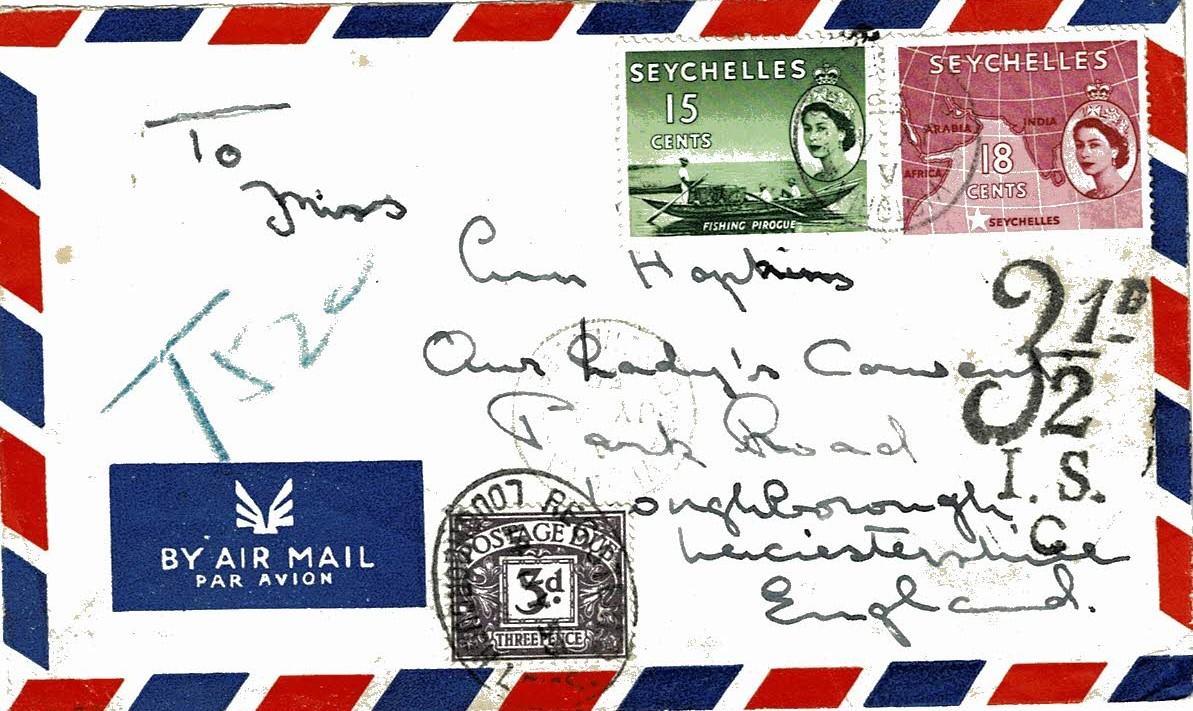 SEYCHELLES
15
CENTS
FISHING PIROGUE
SEYCHELLES
ARABIA
INDIA
AFRICA
18
CENTS
SEYCHELLES
To
Miss
Ann Hopkins
Our Lady's Convent
Park Road
Loughborough
Leiciestershire
England.
T 52c
BY AIR MAIL
PAR AVION
POSTAGE DUE
3d.
THREE PENCE
1D
2
I. S.
C